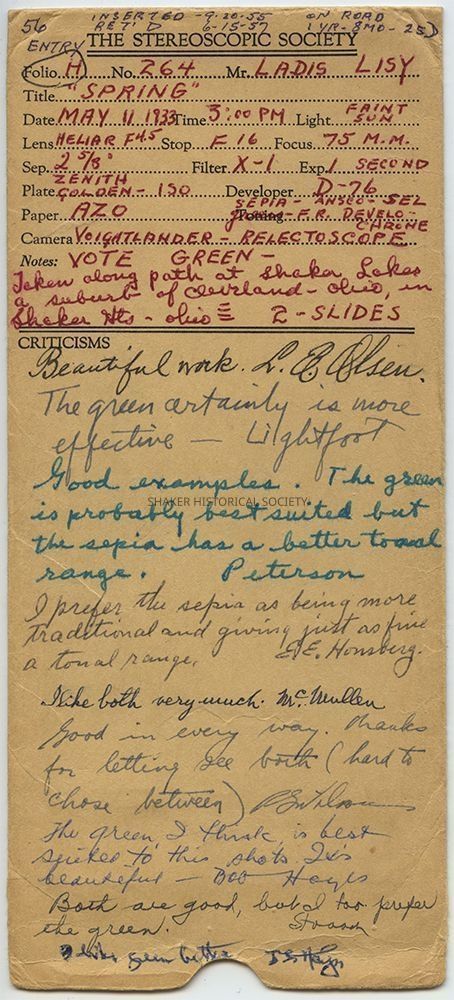 56 INSERTED - 9-20-55 ON ROAD
RET'D 6-15-57 1 YR-8MO-25D
ENTRY THE STEREOSCOPIC SOCIETY
Folio H No. 264 Mr. LADIS LISY
Title "SPRING"
Date MAY 11, 1933 Time 3:00 PM Light FAINT SUN
Lens HELIAR F4.5 Stop F 16 Focus 75 M.M.
Sep. 2 5/8" Filter X-1 Exp. 1 SECOND
Plate ZENITH GOLDEN - 150 Developer D-76
Paper AZO Toning SEPIA - ANSCO - SEL
GREEN - F.R. DEVELO-CHROME
Camera VOIGHTLANDER - RELECTOSCOPE
Notes: VOTE GREEN -
Taken along path at Shaker Lakes
a suburb of Cleveland - Ohio, in
Shaker Hts - Ohio 2 - SLIDES
CRITICISMS
Beautiful work. L. B. Olsen.
The green certainly is more
effective — Lightfoot
Good examples. The green
SHAKER HISTORICAL SOCIETY
is probably best suited but
the sepia has a better tonal
range. Peterson
I prefer the sepia as being more
traditional and giving just as fine
a tonal range. E.E. Honsberg.
I like both very much. McMullen
Good in every way. Thanks
for letting see both (hard to
chose between)
The green I think, is best
suited to this shots. Its
beautiful - Bob Hayes
Both are good, but I too prefer
the green.
I like green better